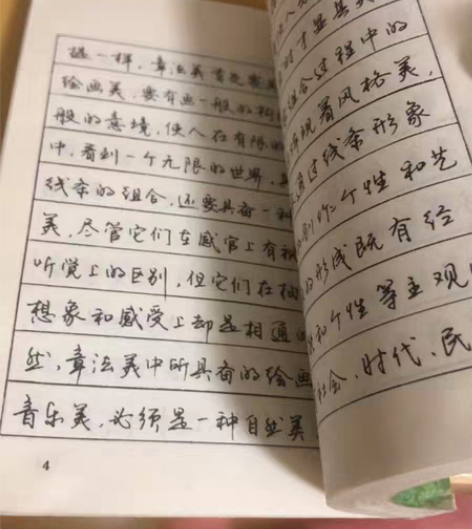 一样，章法美首先要
绘画美，要有画一般的构
般的意境，使人在有限的
中，看到一个无限的世界，
线条的组合，还要具备一种
美，尽管它们在感官上有视
听觉上的区别，但它们在抽
想象和感受上却是相通的
然，章法美中所具备的绘画
音乐美，必须是一种自然美
4
时才显其
组合过程中的
体现着风格美，
通过线条形象
个性和艺
的形成既有经
和个性等主观
社会、时代、民